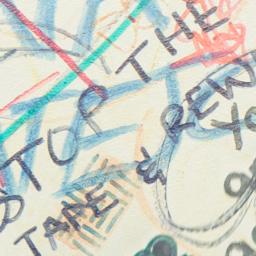 STOP THE
TAPE & REW
YO